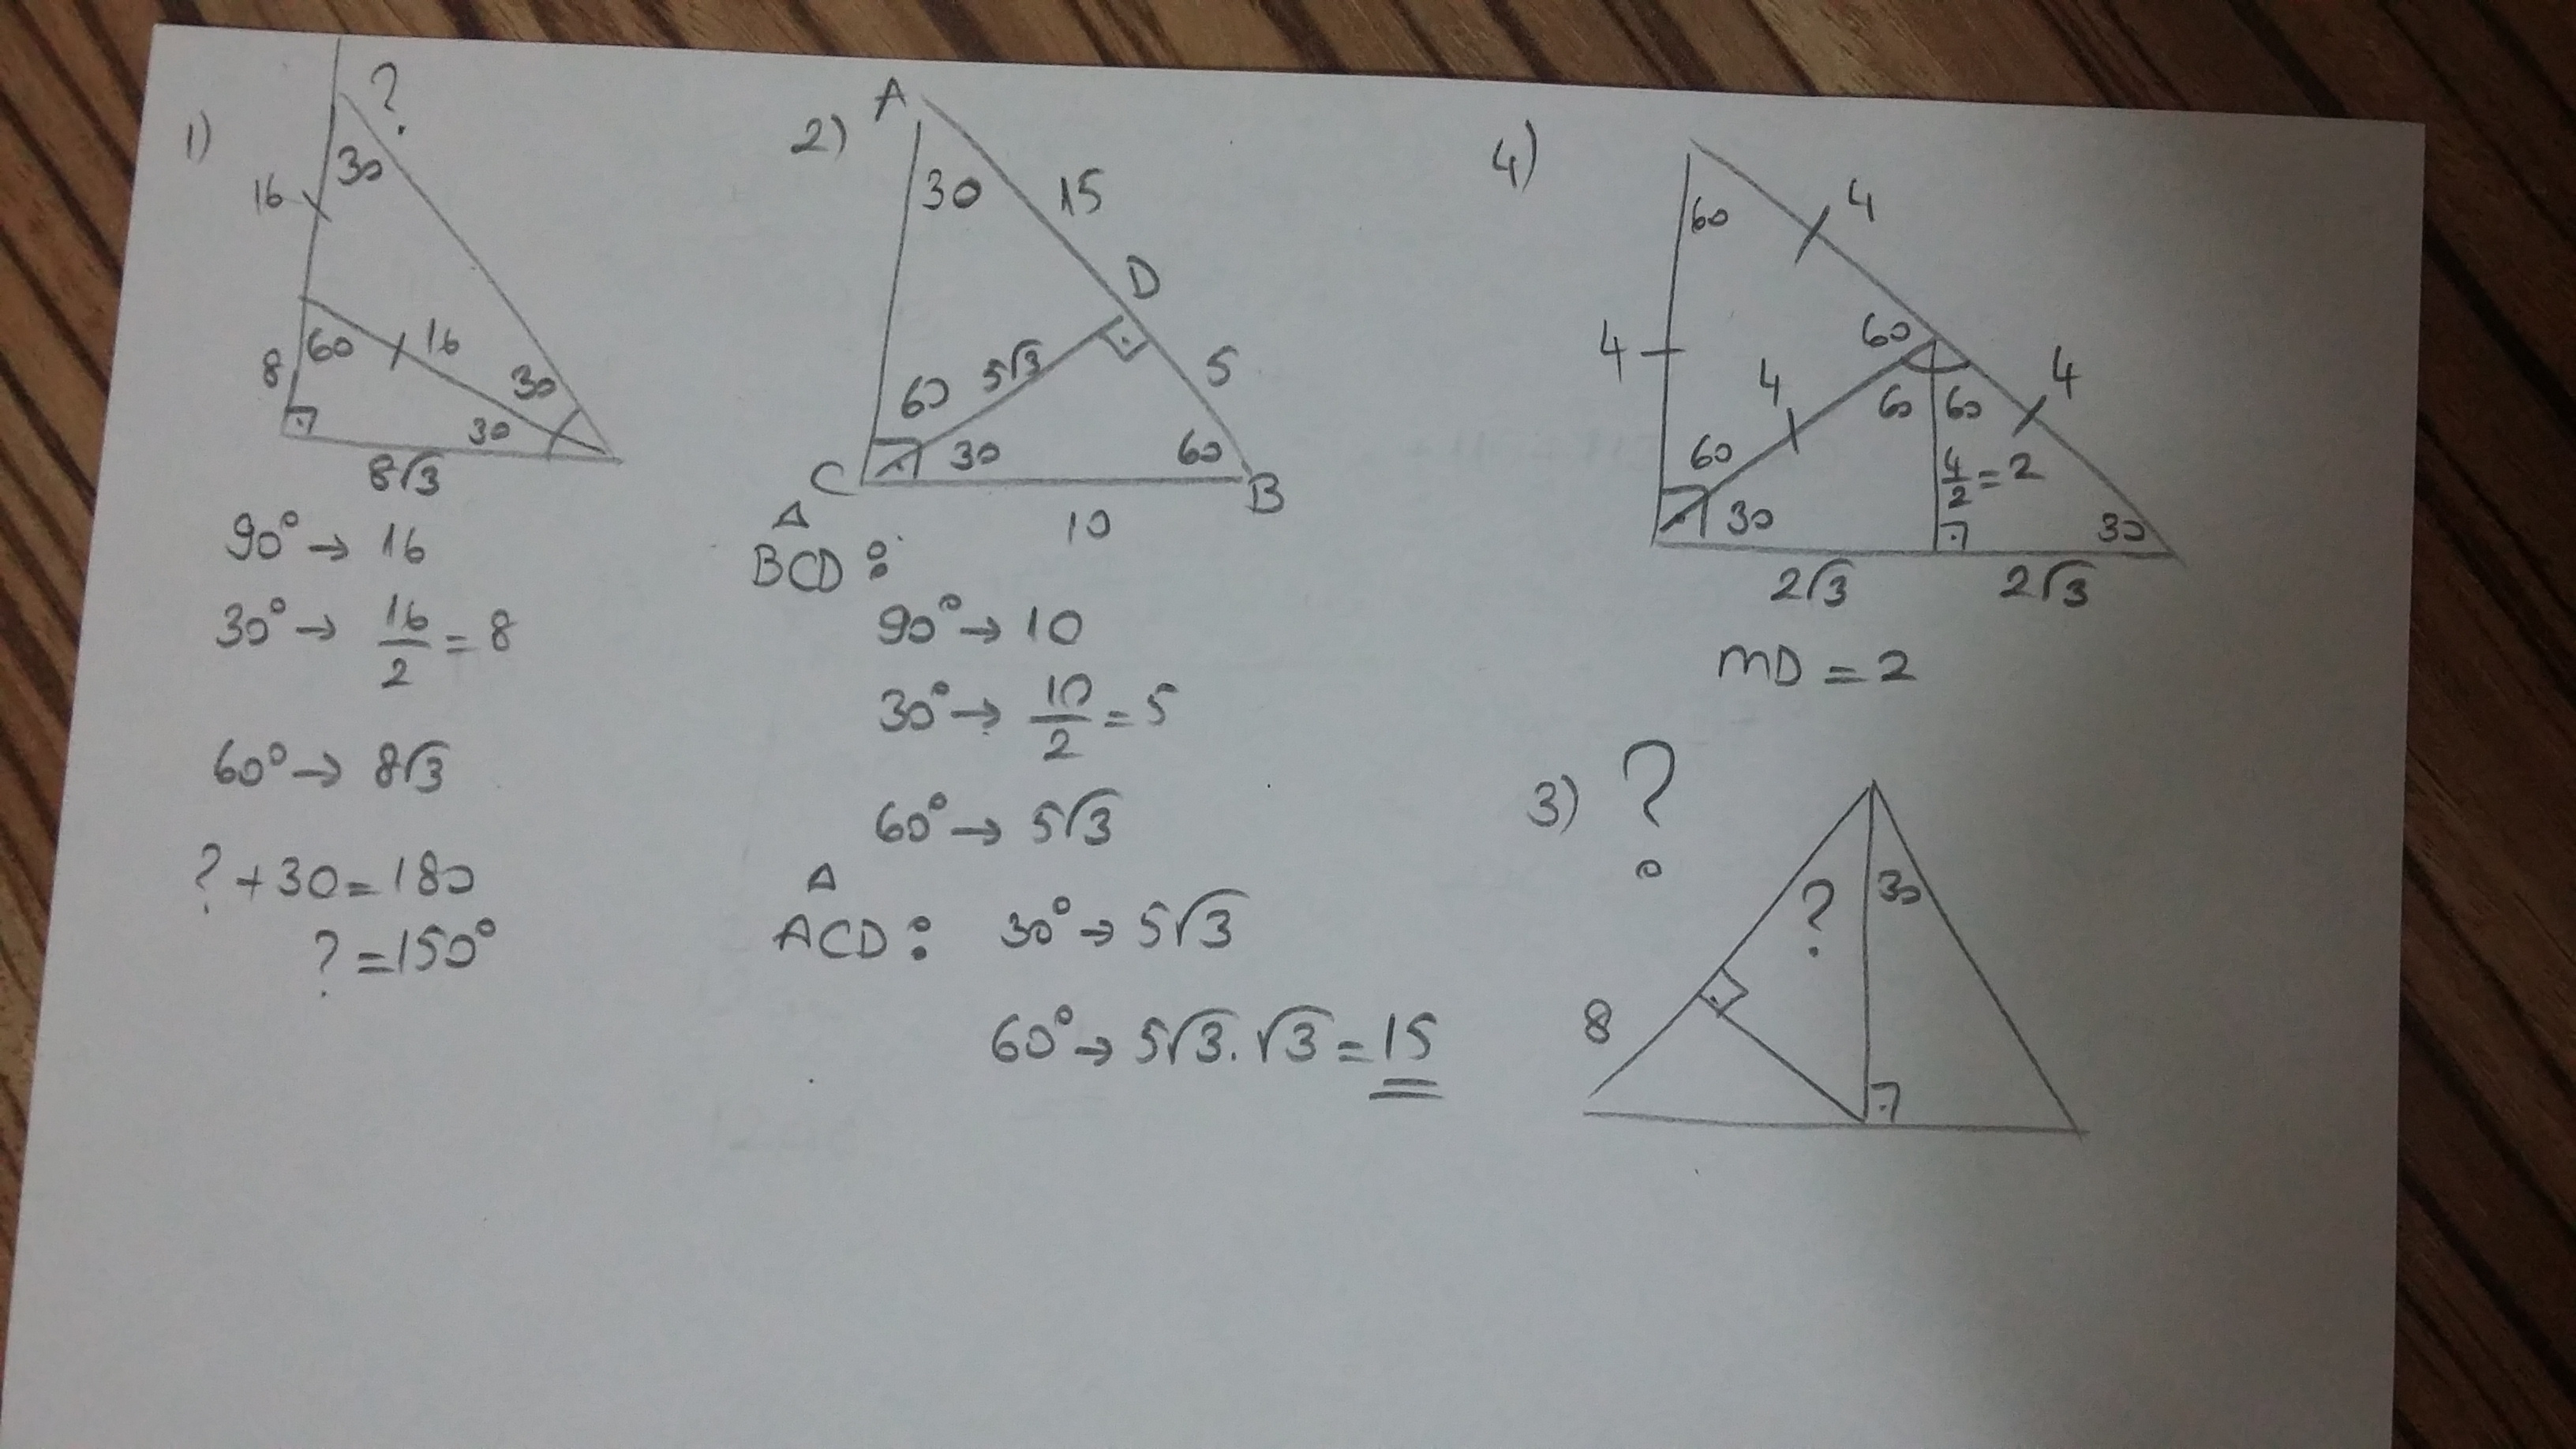 1)
?
30
16
60
16
8
30
30
8√3
90° → 16
30° → 16/2 = 8
60° → 8√3
? + 30 = 180
? = 150°
2)
A
30
15
D
60
5√3
5
C
30
60
B
10
△
BCD :
90° → 10
30° → 10/2 = 5
60° → 5√3
△
ACD : 30° → 5√3
60° → 5√3 . √3 = 15
4)
60
4
60
4
4
4
60
60
60
4/2 = 2
30
30
2√3
2√3
MD = 2
3) ?
?
30
8